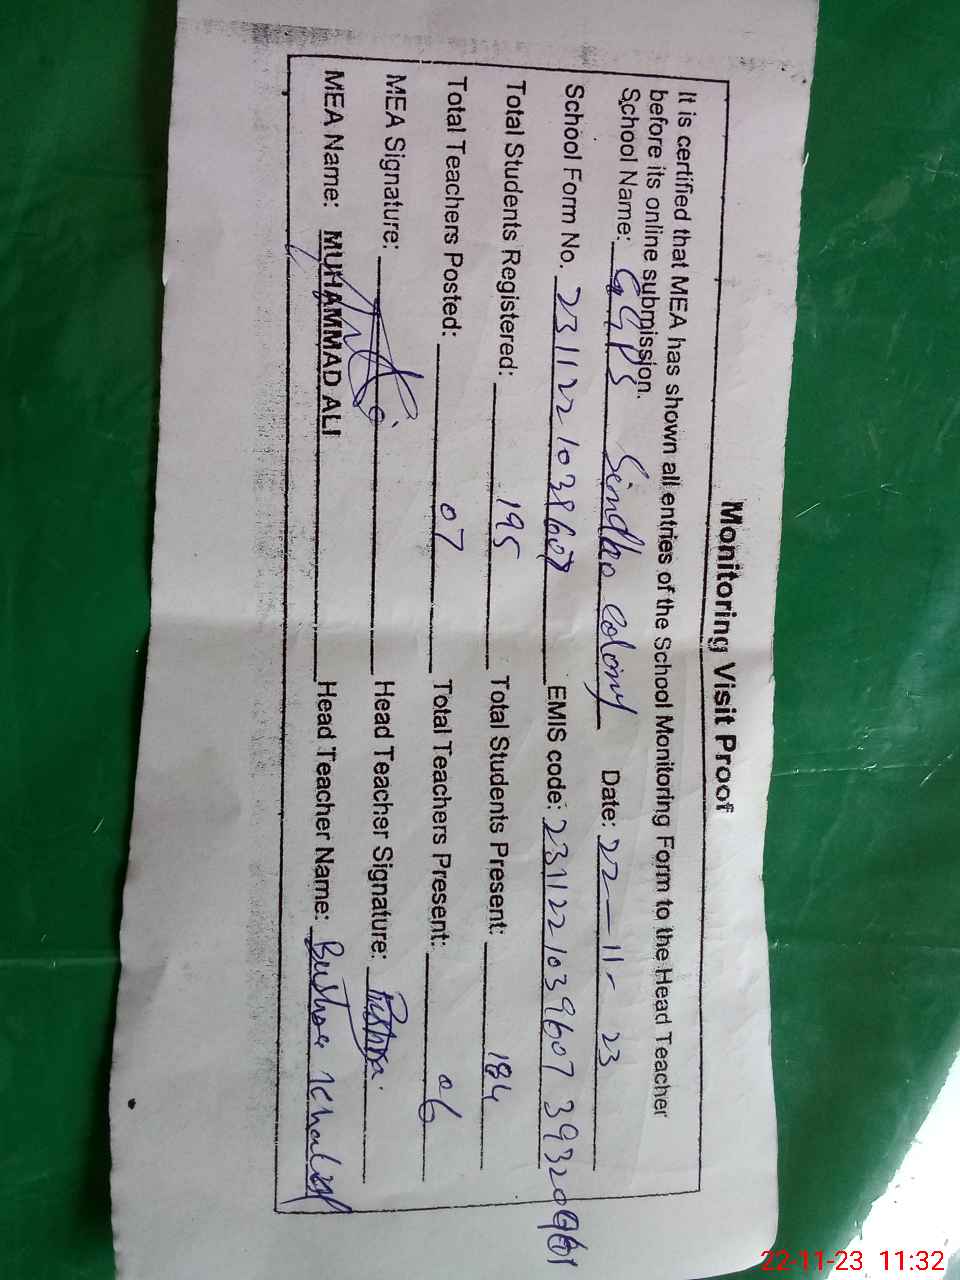 Monitoring Visit Proof
It is certified that MEA has shown all entries of the School Monitoring Form to the Head Teacher
before its online submission.
School Name: GGPS Sindho Colony Date: 22-11-23
School Form No. EMIS code:
Total Students Registered: 195 Total Students Present: 184
Total Teachers Posted: 07 Total Teachers Present: 06
MEA Signature: Head Teacher Signature: Bushra
MEA Name: MUHAMMAD ALI Head Teacher Name: Bushra
22-11-23 11:32